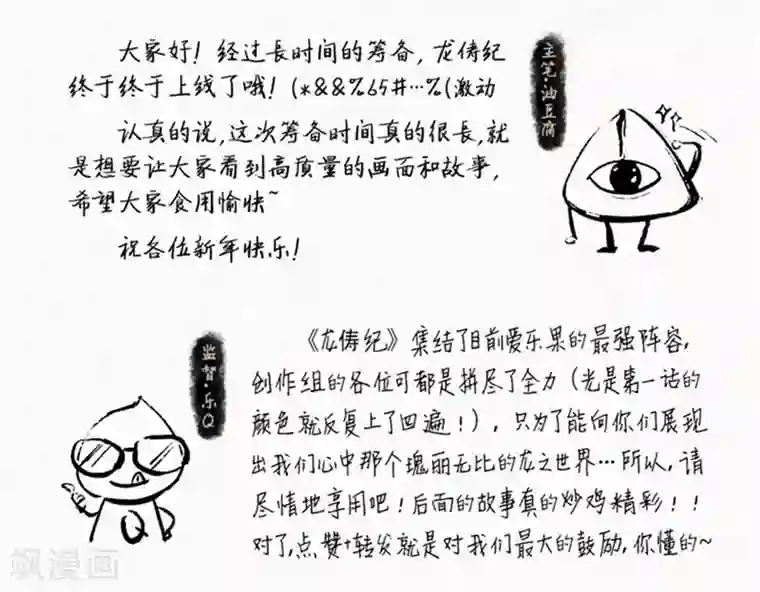 大家好！经过长时间的筹备，龙俦纪
终于终于上线了哦！(*&&%65#…%(激动
认真的说，这次筹备时间真的很长，就
是想要让大家看到高质量的画面和故事，
希望大家食用愉快~
祝各位新年快乐！
主笔·油豆腐
监督·乐Q
《龙俦纪》集结了目前爱乐果的最强阵容，
创作组的各位可都是拼尽了全力（光是第一话的
颜色就反复上了四遍！），只为了能向你们展现
出我们心中那个瑰丽无比的龙之世界…所以，请
尽情地享用吧！后面的故事真的炒鸡精彩！！
对了，点赞+转发就是对我们最大的鼓励，你懂的~
Q
飒漫画